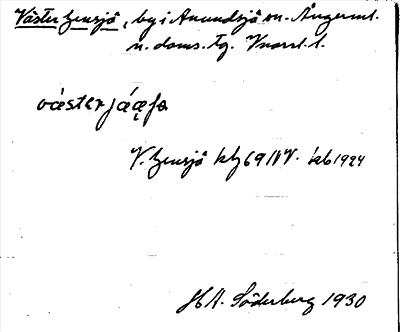 Västergensjö, by i Anundsjö sn. Ångerml.
n. doms. tg. Vnorrl. l.
V. Gensjö kbg 69 IV V. kb 1924
H.A. Söderberg 1930